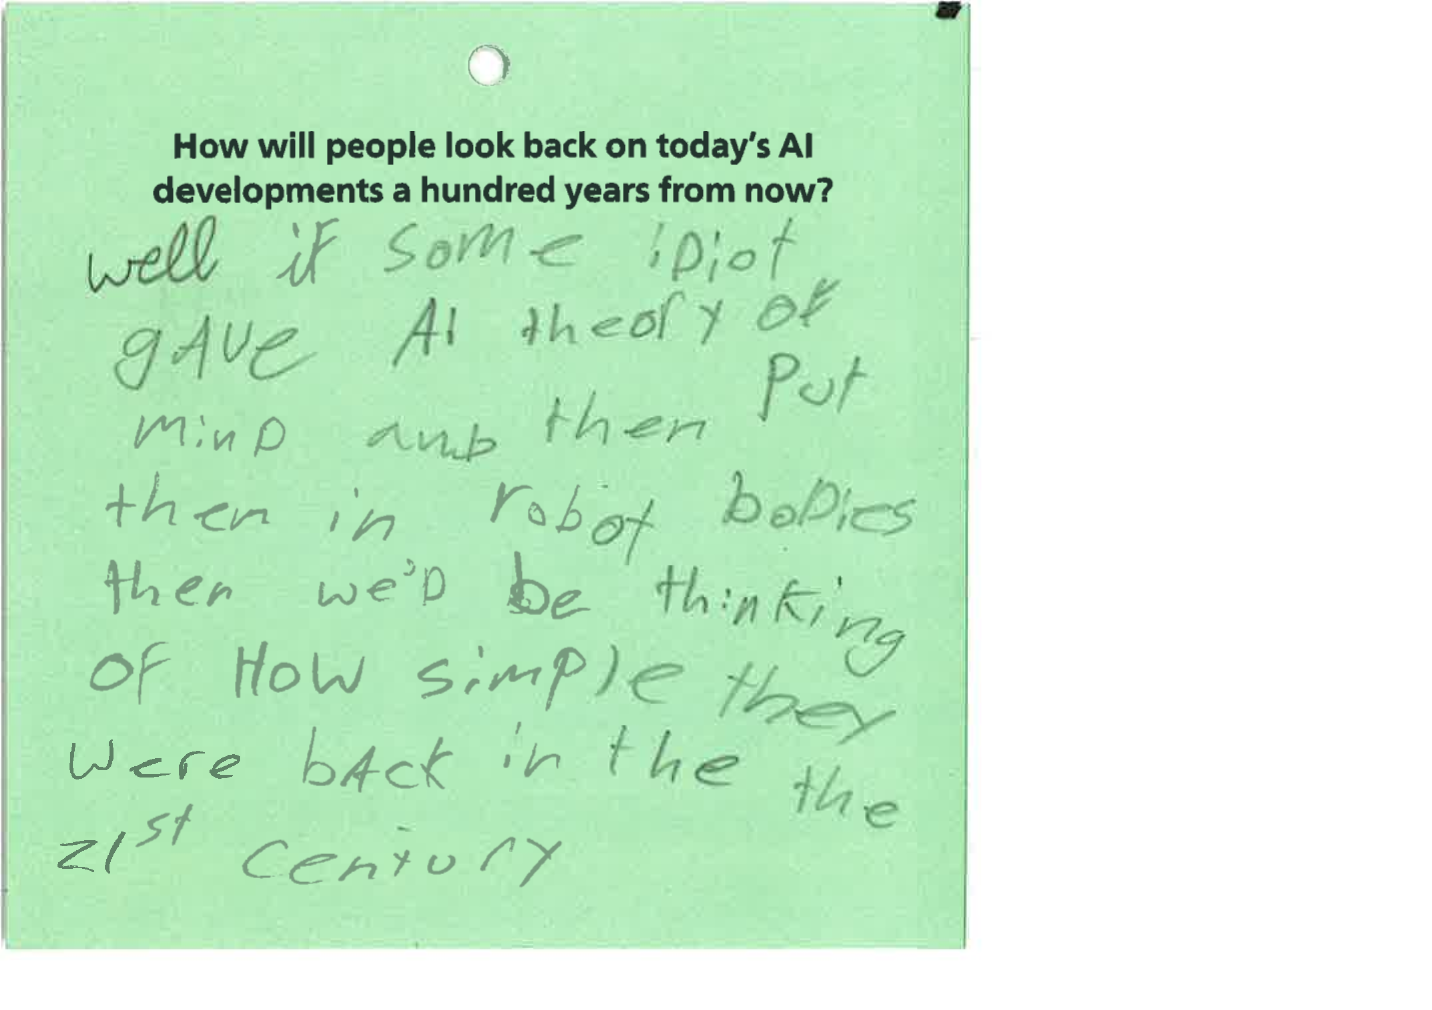 How will people look back on today's AI
developments a hundred years from now?
well if some iDiot
gAve AI theory of
minD anD then Put
then in robot boDies
then we'D be thinking
oF How simple they
were bAck in the the
21st century